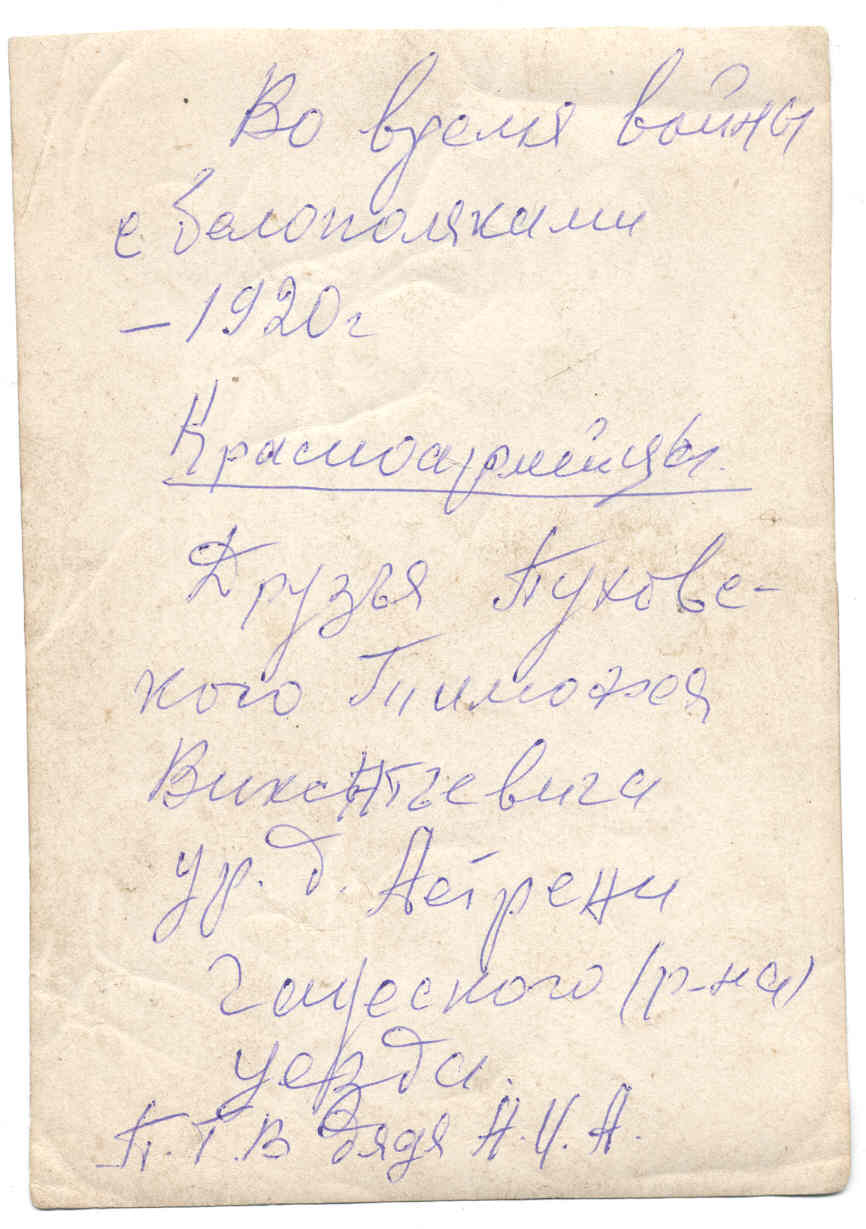 Во время войны
с белополяками
– 1920 г
Красноармейцы.
Друзья Пуховс-
кого Тимофея
Викентьевича
ур. д. Астрени
уезда.
П.Т.В дядя А.И.А.